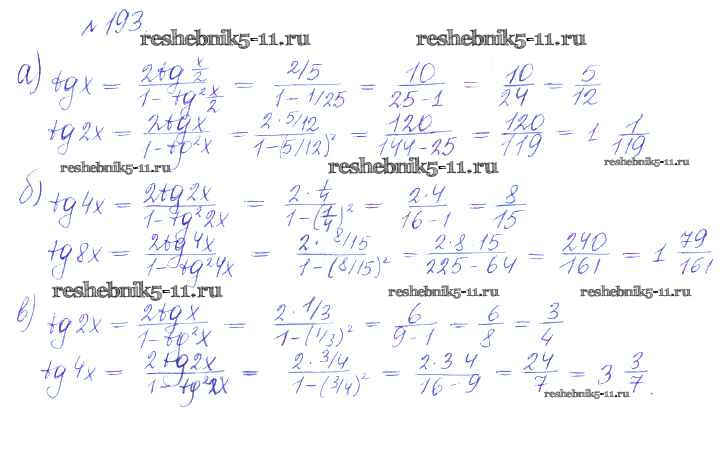 №193.
reshebnik5-11.ru reshebnik5-11.ru
а) tgx = 2tg x/2 / 1 - tg² x/2 = 2/5 / 1 - 1/25 = 10 / 25 - 1 = 10/24 = 5/12
tg2x = 2tgx / 1 - tg²x = 2·5/12 / 1 - (5/12)² = 120 / 144 - 25 = 120/119 = 1 1/119
reshebnik5-11.ru reshebnik5-11.ru reshebnik5-11.ru
б) tg4x = 2tg2x / 1 - tg²2x = 2·1/4 / 1 - (1/4)² = 2·4 / 16 - 1 = 8/15
tg8x = 2tg4x / 1 - tg²4x = 2·8/15 / 1 - (8/15)² = 2·8 15 / 225 - 64 = 240/161 = 1 79/161
reshebnik5-11.ru reshebnik5-11.ru reshebnik5-11.ru
в) tg2x = 2tgx / 1 - tg²x = 2·1/3 / 1 - (1/3)² = 6 / 9 - 1 = 6/8 = 3/4
tg4x = 2tg2x / 1 - tg²2x = 2·3/4 / 1 - (3/4)² = 2·3 4 / 16 - 9 = 24/7 = 3 3/7.
reshebnik5-11.ru